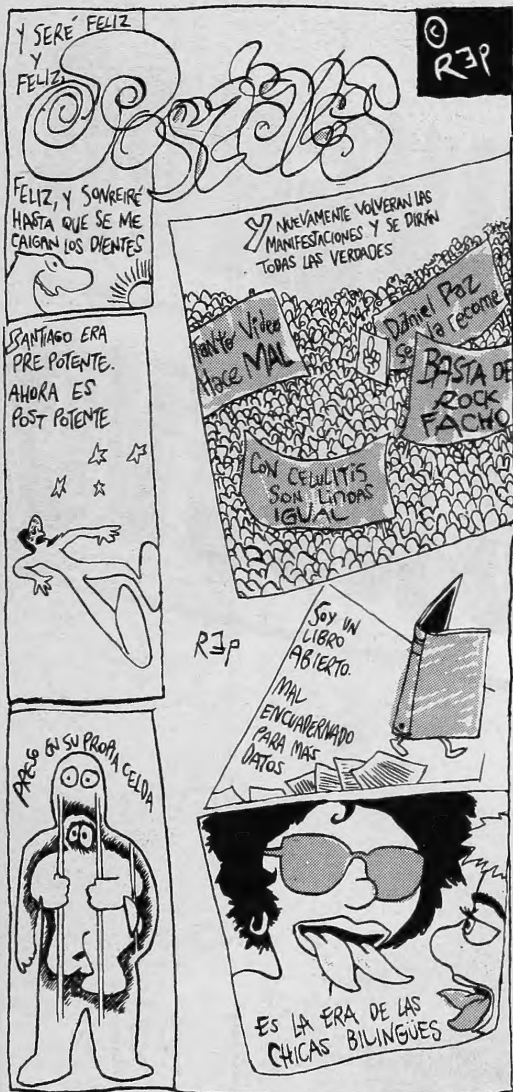 Y SERÉ FELIZ
Y
FELIZ,
POSTALES
© REP
FELIZ, Y SONREIRÉ
HASTA QUE SE ME
CAIGAN LOS DIENTES
Y NUEVAMENTE VOLVERAN LAS
MANIFESTACIONES Y SE DIRÁN
TODAS LAS VERDADES
Tanto Video
Hace MAL
Daniel Paz
Se la recome
BASTA DE
ROCK
FACHO
CON CELULITIS
SON LINDAS
IGUAL
SANTIAGO ERA
PRE POTENTE.
AHORA ES
POST POTENTE
REP
SOY UN
LIBRO
ABIERTO.
MAL
ENCUADERNADO
PARA MAS
DATOS
PRESO EN SU PROPIA CELDA
ES LA ERA DE LAS
CHICAS BILINGÜES